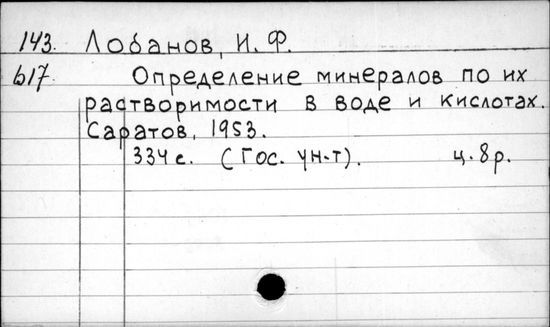 143. Лобанов, И. Ф.
b17. Определение минералов по их
растворимости в воде и кислотах.
Саратов, 1953.
334 с. (Гос. ун-т). ц. 8 р.